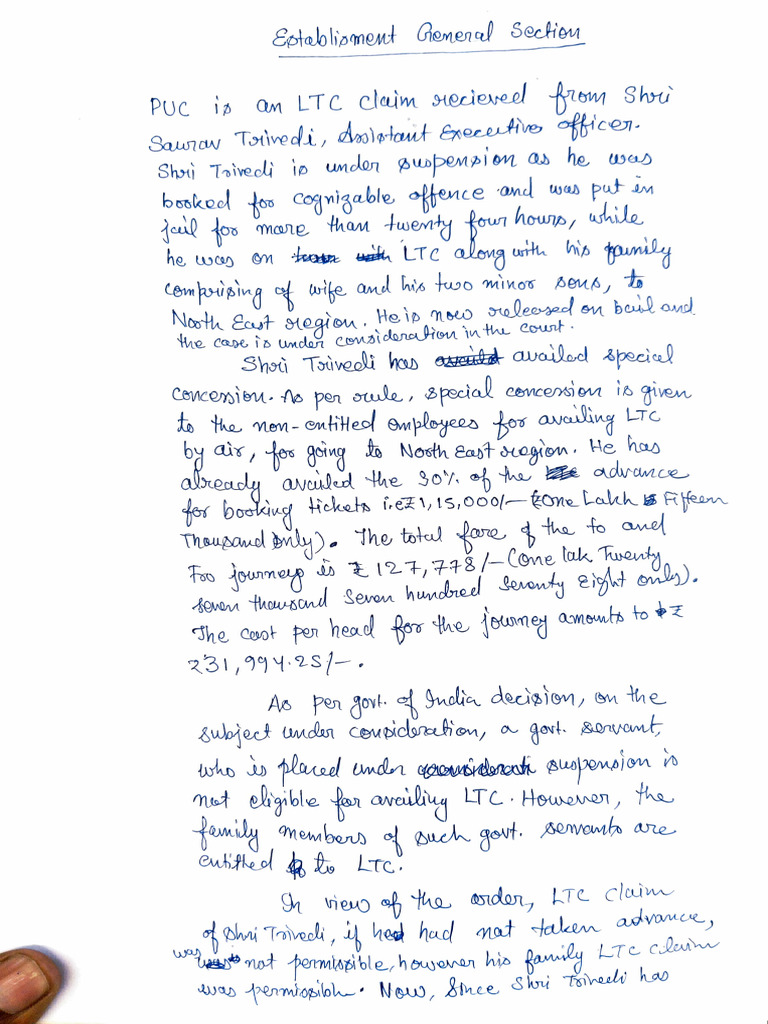 Establisment General Section
PUC is an LTC claim recieved from Shri
Saurav Trivedi, Assistant Executive officer.
Shri Trivedi is under suspension as he was
booked for cognizable offence and was put in
jail for more than twenty four hours, while
he was on LTC along with his family
comprising of wife and his two minor sons, to
North East region. He is now released on bail and
the case is under consideration in the court.
Shri Trivedi has availed special
concession. As per rule, special concession is given
to the non-entitled employees for availing LTC
by air, for going to North East region. He has
already availed the 90% of the advance
for booking tickets i.e ₹1,15,000/- (One Lakh Fifteen
Thousand Only). The total fare of the to and
Fro journey is ₹ 127,778/- (One lak Twenty
seven thousand Seven hundred Seventy Eight only).
The cost per head for the journey amounts to ₹
₹31,994.25/-.
As per govt. of India decision, on the
subject under consideration, a govt. servant,
who is placed under suspension is
not eligible for availing LTC. However, the
family members of such govt. servants are
entitled to LTC.
In view of the order, LTC claim
of Shri Trivedi, if had not taken advance,
was not permissible, however his family LTC claim
was permissible. Now, Since Shri Trivedi has